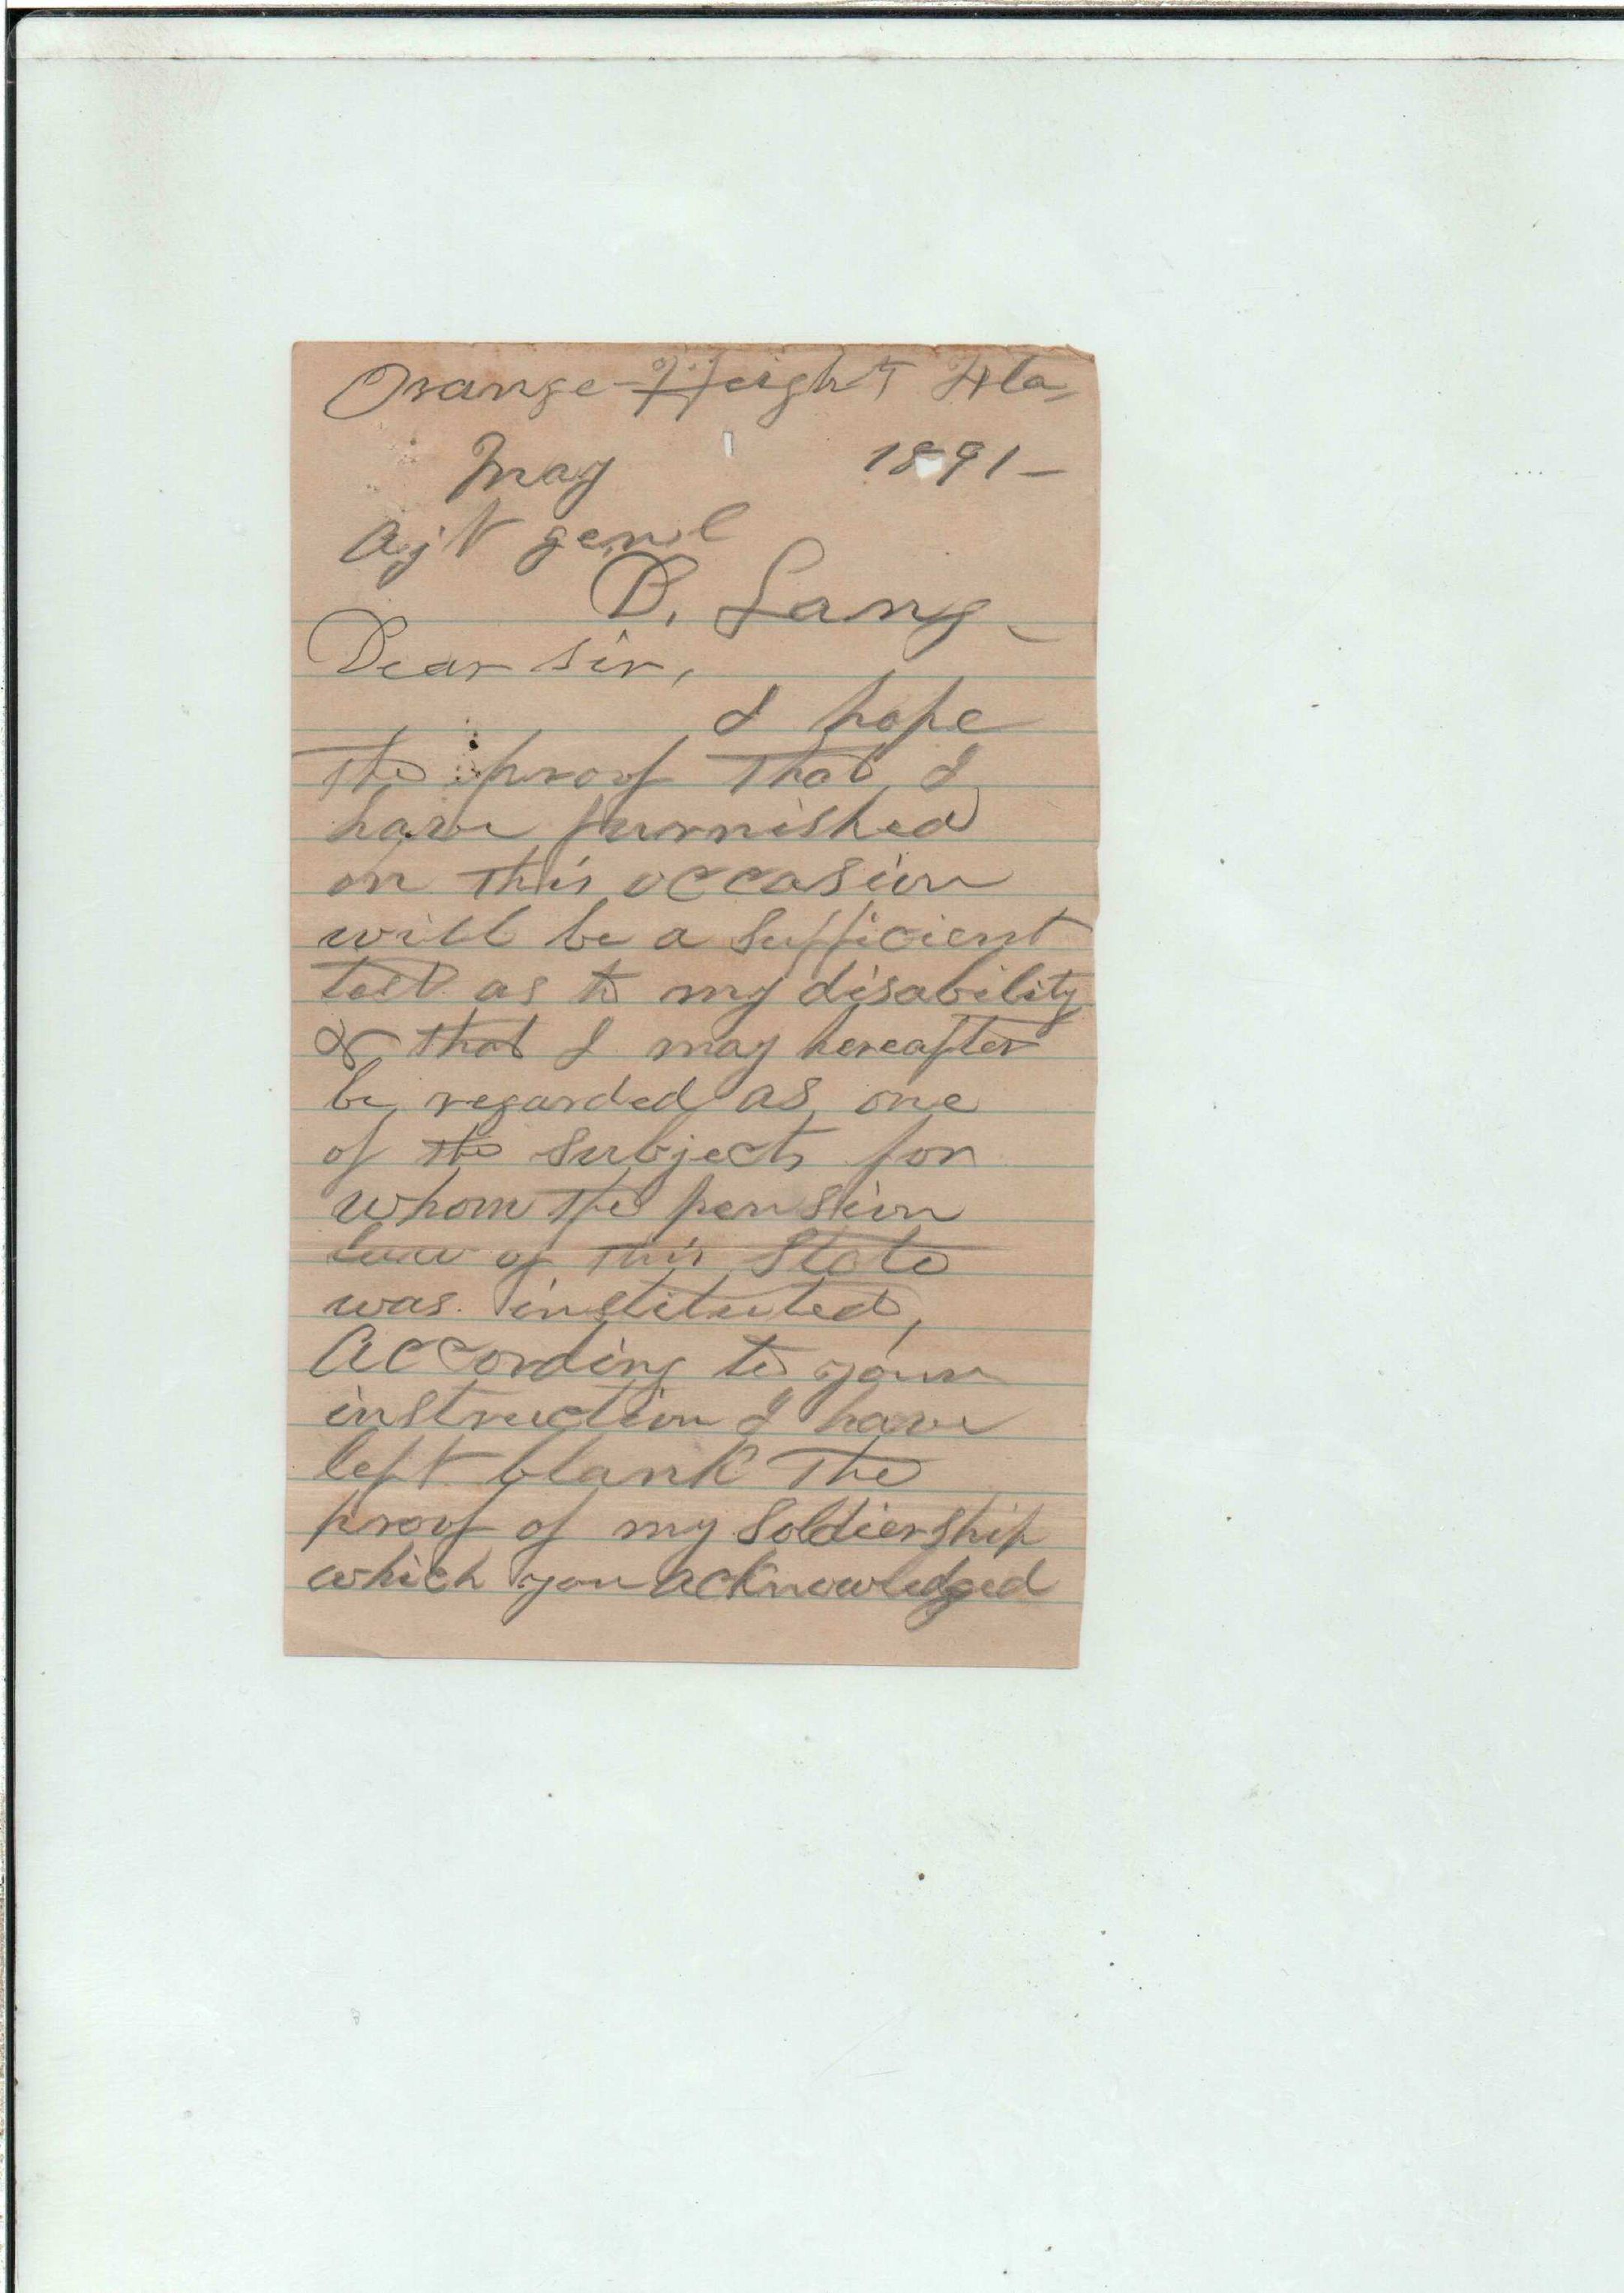 Orange-Height Fla,
May 1891-
Ajt genl
D. Lang-
Dear sir,
I hope
the proof that I
have furnished
on this occasion
will be a sufficient
test as to my disability
& that I may hereafter
be regarded as one
of the subjects for
whom the pension
law of this State
was instituted,
According to your
instruction I have
left blank the
proof of my soldiership
which you acknowledged